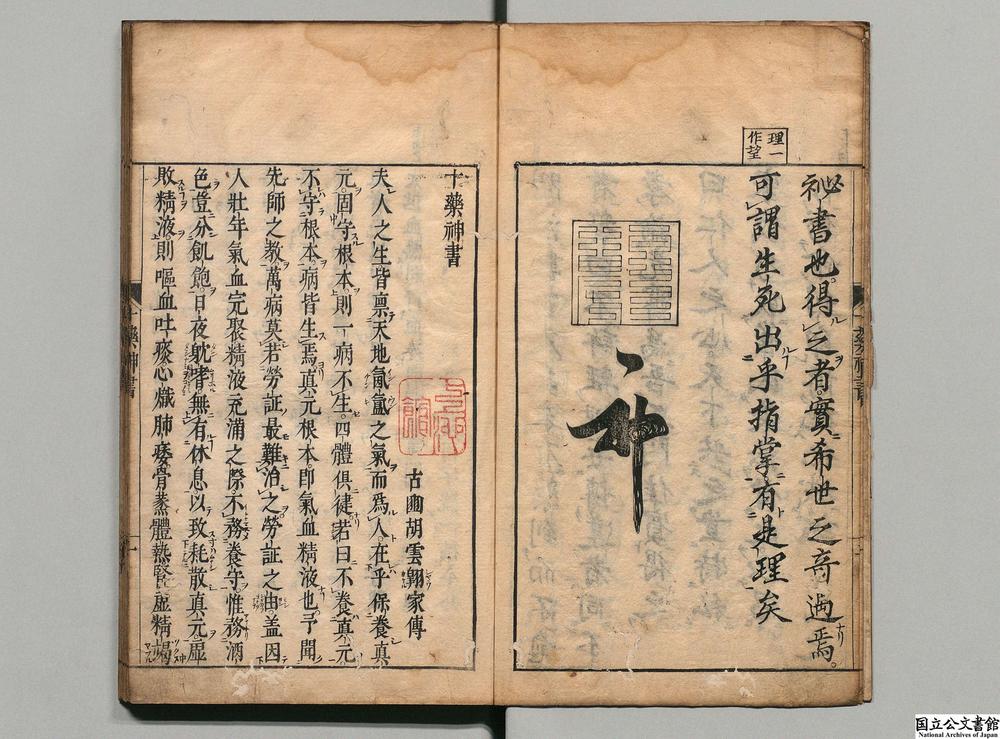 理一
作望
祕書也得之者實希世之奇遇焉
可謂生死出乎指掌有是理矣
十藥神書
古圃胡雲翱家傳
夫人之生皆禀天地氤氳之氣而爲人在乎保養真
元固守根本則一病不生四體俱徤若曰不養真元
不守根本病皆生焉真元根本即氣血精液也予聞
先師之教萬病莫若勞証最難治之勞証之由盖因
人壯年氣血完聚精液充滿之際不務養守惟務酒
色豈分飢飽日夜躭嗜無有休息以致耗散真元虛
敗精液則嘔血吐痰心熾肺痿骨蒸體熱腎虛精竭
十藥神書
国立公文書館
National Archives of Japan